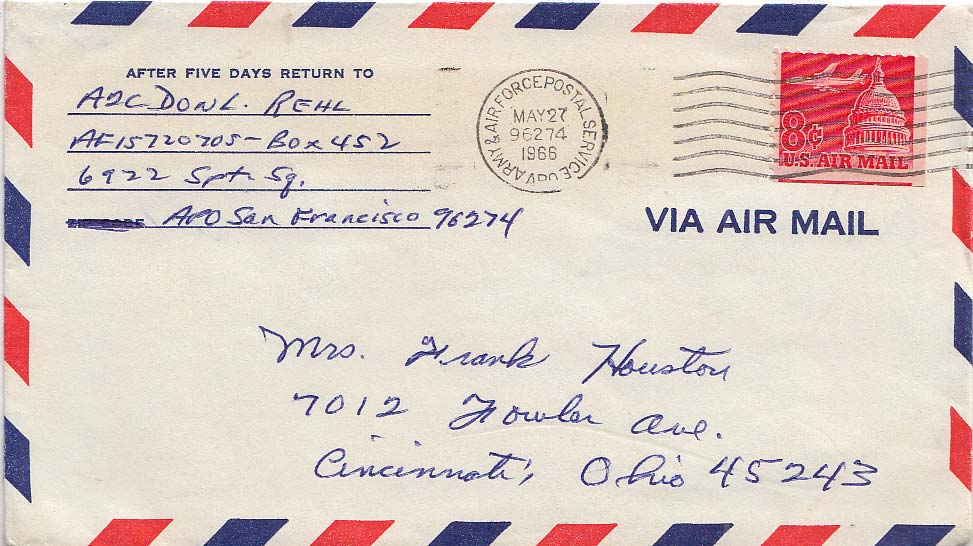 AFTER FIVE DAYS RETURN TO
A2C DON L. REHL
AF15720705 - Box 452
6922 Spt. Sq.
APO San Francisco 96274
ARMY & AIR FORCE POSTAL SERVICE
MAY 27
96274
1966
8¢
U.S. AIR MAIL
VIA AIR MAIL
Mrs. Frank Houston
7012 Fowler Ave.
Cincinnati, Ohio 45243